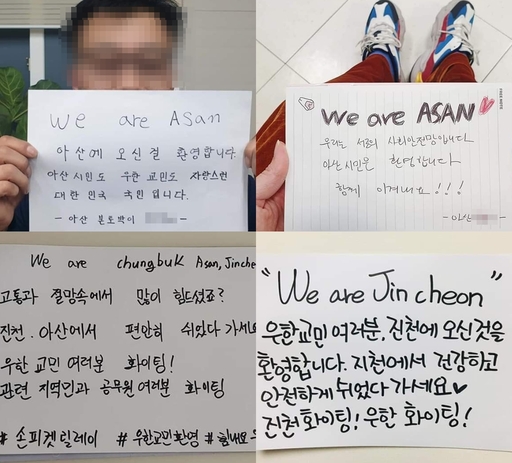 We are Asan
아산에 오신걸 환영합니다.
아산시민도 우한교민도 사랑스런
대한민국 국민입니다.
- 아산 본토박이
We are ASAN
우리는 서로의 사회안전망입니다
아산시민은 환영합니다
함께 이겨내요!!!
-아산
FREE NOTE
We are chungbuk Asan, Jinche
고통과 절망속에서 많이 힘드셨죠?
진천. 아산에서 편안히 쉬었다 가세요
우한 교민 여러분 화이팅!
관련 지역민과 공무원 여러분 화이팅
#손피켓릴레이 #우한교민환영 #힘내요
"We are Jin cheon"
우한교민 여러분, 진천에 오신것을
환영합니다. 지천에서 건강하고
안전하게 쉬었다 가세요♥
진천화이팅! 우한 화이팅!